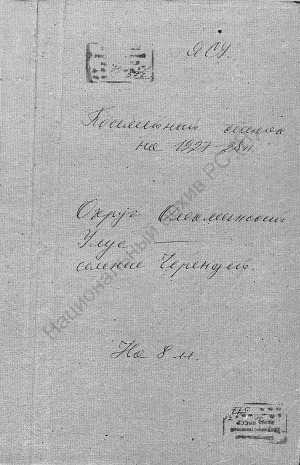 ЯСУ.
Поселенный список
на 1927-28 гг.
Округ Олекминский
Улус —
селение Черендей.
На 8 лл.
Национальный архив РС(Я)